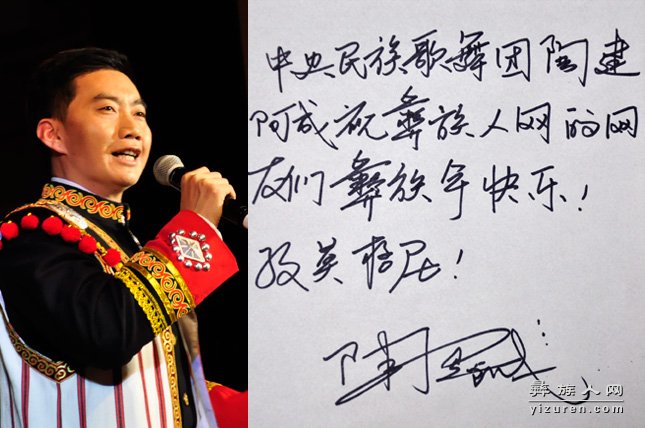 中央民族歌舞团陶建
阿成祝彝族人网的网
友们彝族年快乐！
孜莫格尼！
彝族人网
yizuren.com